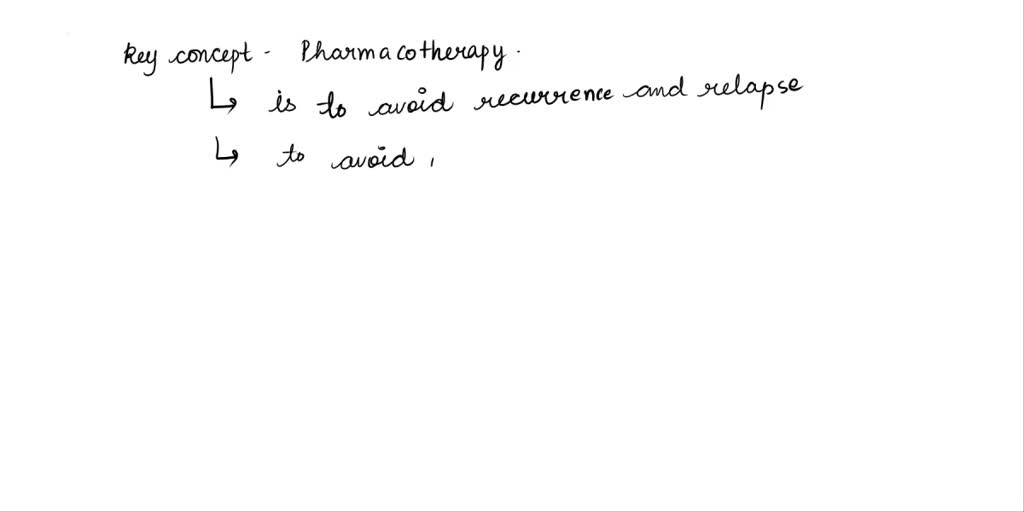 key concept - Pharmacotherapy.
↳ is to avoid recurrence and relapse
↳ to avoid